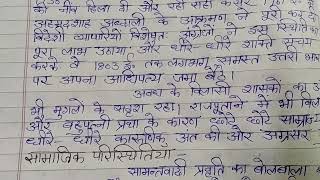 की नींव हिला दी और रही सही कसर
अहमदशाह अब्दाली के आक्रमण ने पूरी कर दी
विदेशी व्यापारियों विशेषतः अंग्रेजों ने इस स्थिति का
पूरा लाभ उठाया और धीरे-धीरे शक्ति संचय
करके वे 1803 ई. तक लगभग समस्त उत्तरी भारत
पर अपना आधिपत्य जमा बैठे।
अवध के विलासी शासकों का अ
भी मुगलो के सदृश रहा। राजपूताने में भी विला
और बहुपत्नी प्रथा के कारण धीरे धीरे साम्राज्य
धीरे - धीरे कारुणिक अंत की ओर अग्रसर
सामाजिक परिस्थितियां -
सामन्तवादी प्रवृति का बोलबाला